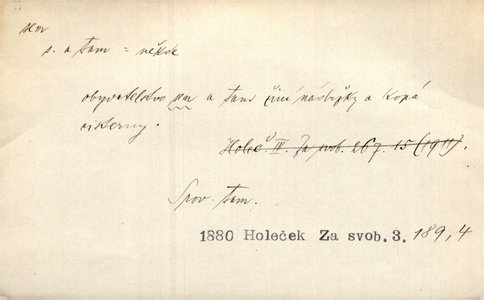 sem
s. a tam = někde
obyvatelstvo sem a tam činí nádržky a kopá
cisterny.
Holeč. IV. Za svob. 267. 15 (1911).
Srov. tam.
1880 Holeček Za svob. 3. 189,4